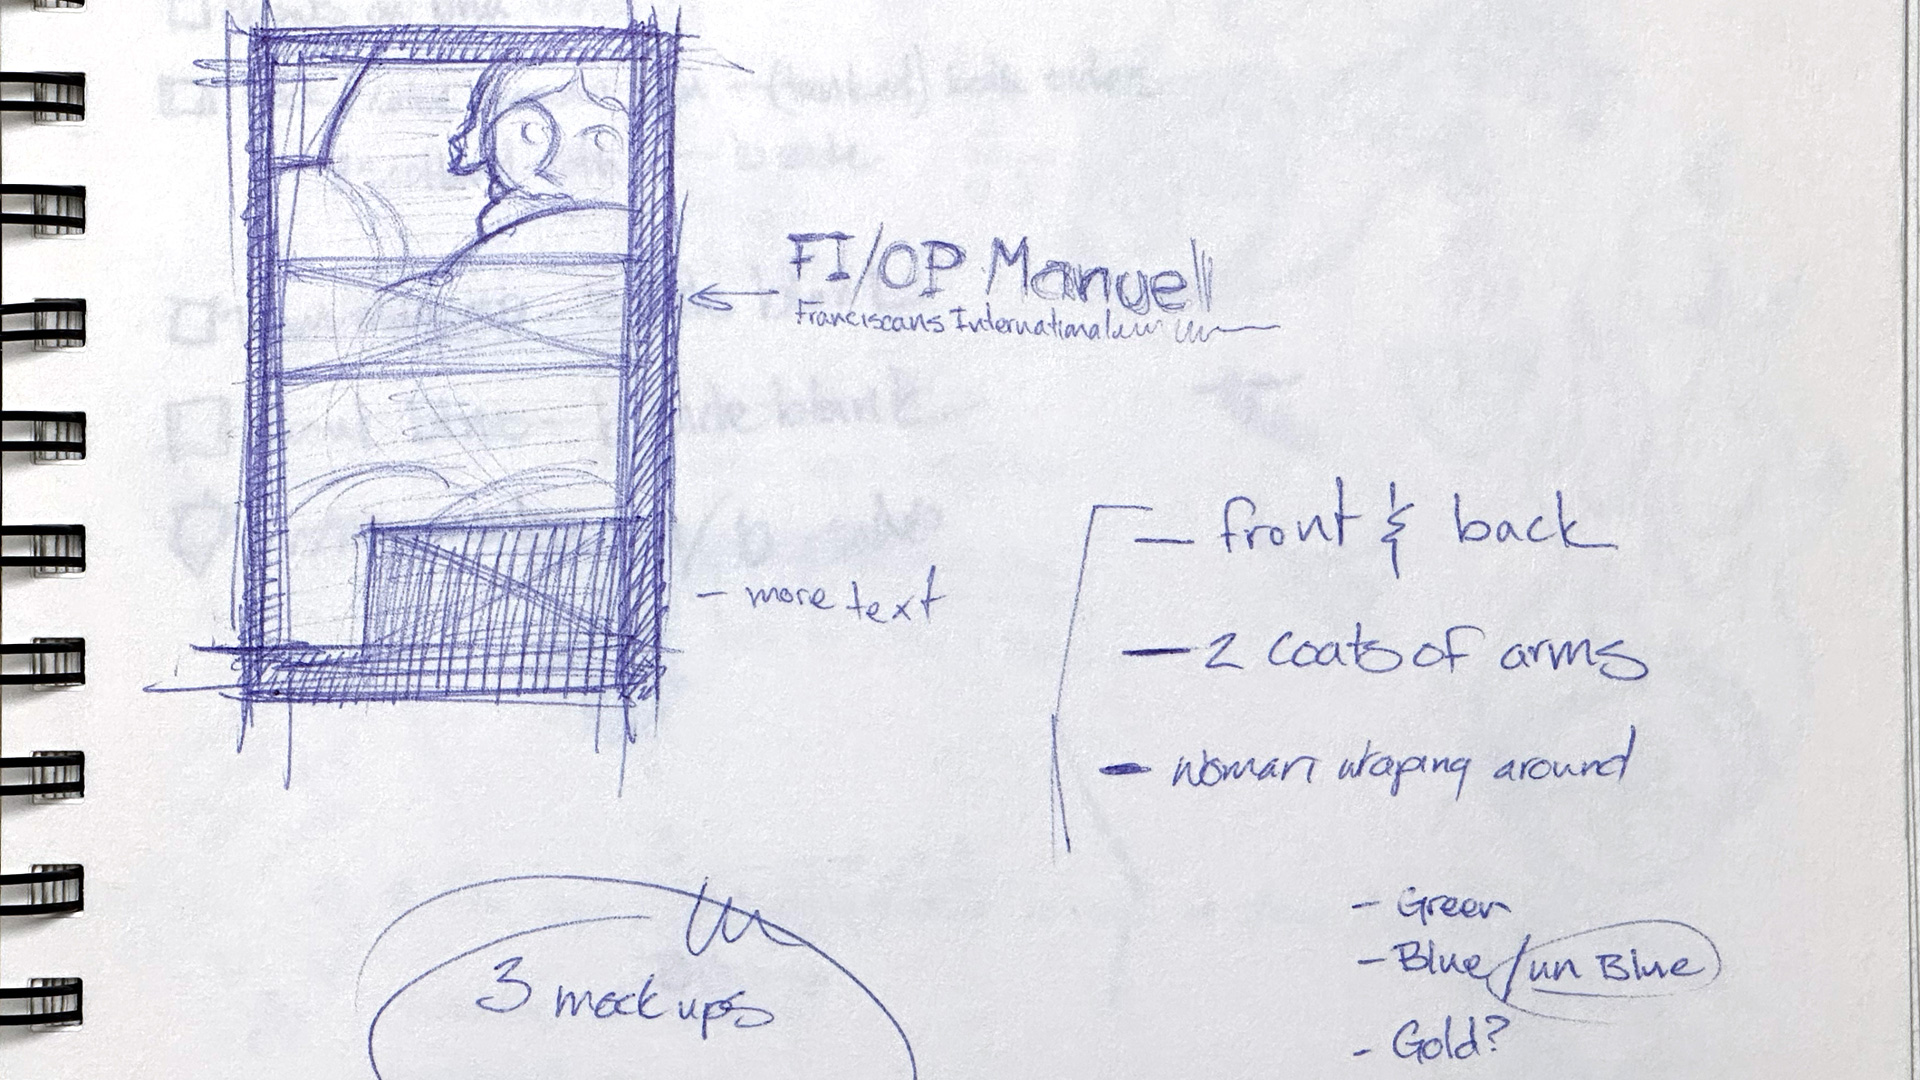 FI/OP Manuell
Franciscans International
- more text
- front & back
- 2 coats of arms
- woman wraping around
- Green
- Blue/un Blue
- Gold?
3 mock ups